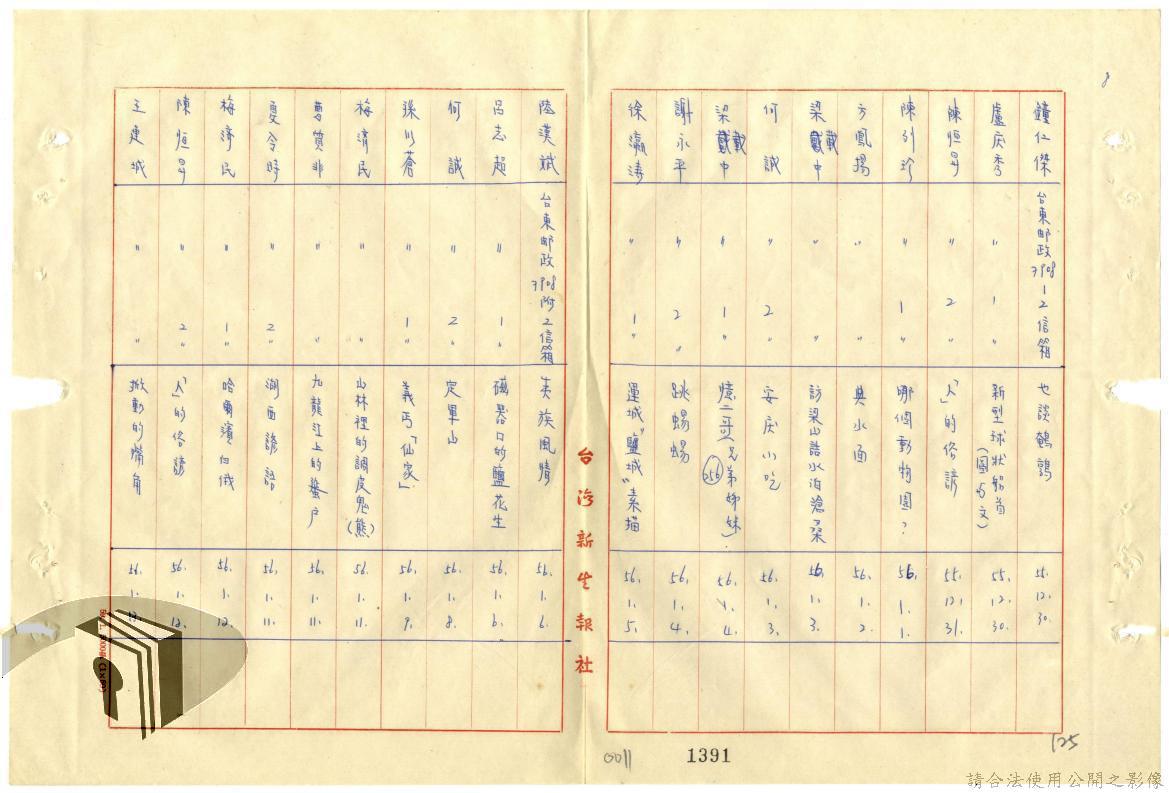 8
鐘仁傑 台東郵政7908-2信箱 也談鵪鶉 55. 12. 30.
盧庆秀 〃 1 〃 新型球状船首(圖与文) 55. 12. 30.
陳恒昇 〃 2 〃 「人」的俗諺 55. 12. 31.
陳列珍 〃 1 〃 哪個動物園? 56. 1. 1.
方鳳揚 〃 〃 與水面 56. 1. 2.
梁戴中 〃 〃 訪梁山話水泊滄桑 56. 1. 3.
何誠 〃 2 〃 安庆小吃 56. 1. 3.
梁戴中 〃 1 〃 憶二哥(兄弟姊妹). 256 56. 1. 4.
謝永平 〃 2 〃 跳蝪蝪 56. 1. 4.
徐瀛涛 〃 1 〃 運城"鹽城"素描 56. 1. 5.
台灣新生報社
陸漢斌 台東郵政7908附2信箱 夷族風情 56. 1. 6.
呂志超 〃 1 〃 磁器口的鹽花生 56. 1. 6.
何誠 〃 2 〃 定軍山 56. 1. 8.
孫以蒼 〃 1 〃 義丐「仙家」. 56. 1. 9.
梅済民 〃 〃 山林裡的調皮鬼(熊) 56. 1. 11.
曹質非 〃 〃 九龍江上的蜑户 56. 1. 11.
夏令時 〃 2 〃 湖西諺語 56. 1. 11.
梅済民 〃 1 〃 哈爾濱白俄 56. 1. 12.
陳恒昇 〃 2 〃 「人」的俗諺 56. 1. 12.
王連城 〃 〃 掀動的嘴角 56. 1.
0011
1391
125
請合法使用公開之影像